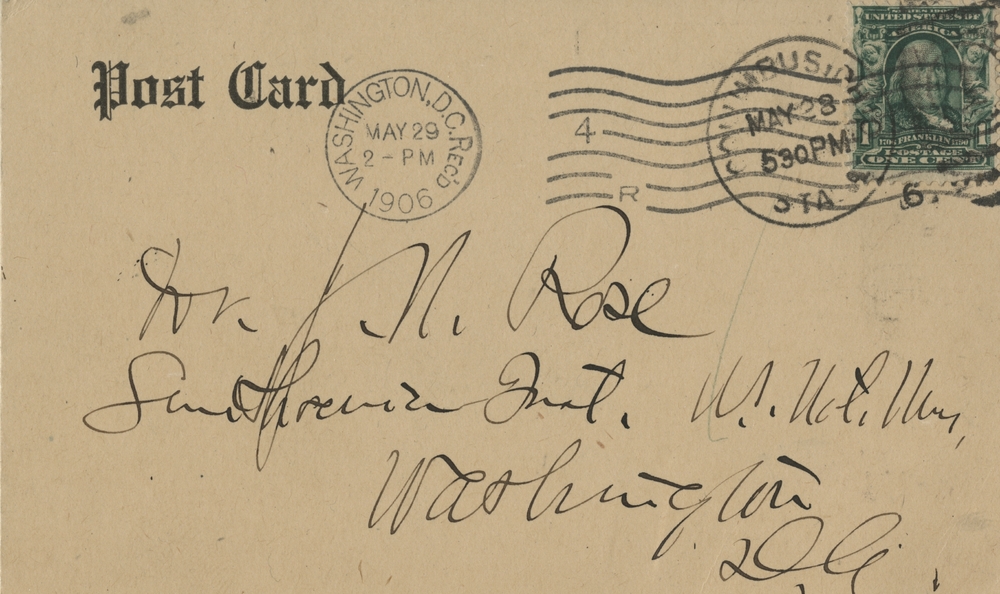 Post Card
WASHINGTON, D.C. REC'D
MAY 29
2 - PM
1906
4
R
COLUMBUS, O
MAY 28
530 PM
STA
6
SERIES 1902
UNITED STATES OF
AMERICA
1706 FRANKLIN 1790
POSTAGE
ONE CENT
Dr. J. N. Rose
Smithsonian Inst. U. Nat. Mus,
Washington
D.C.